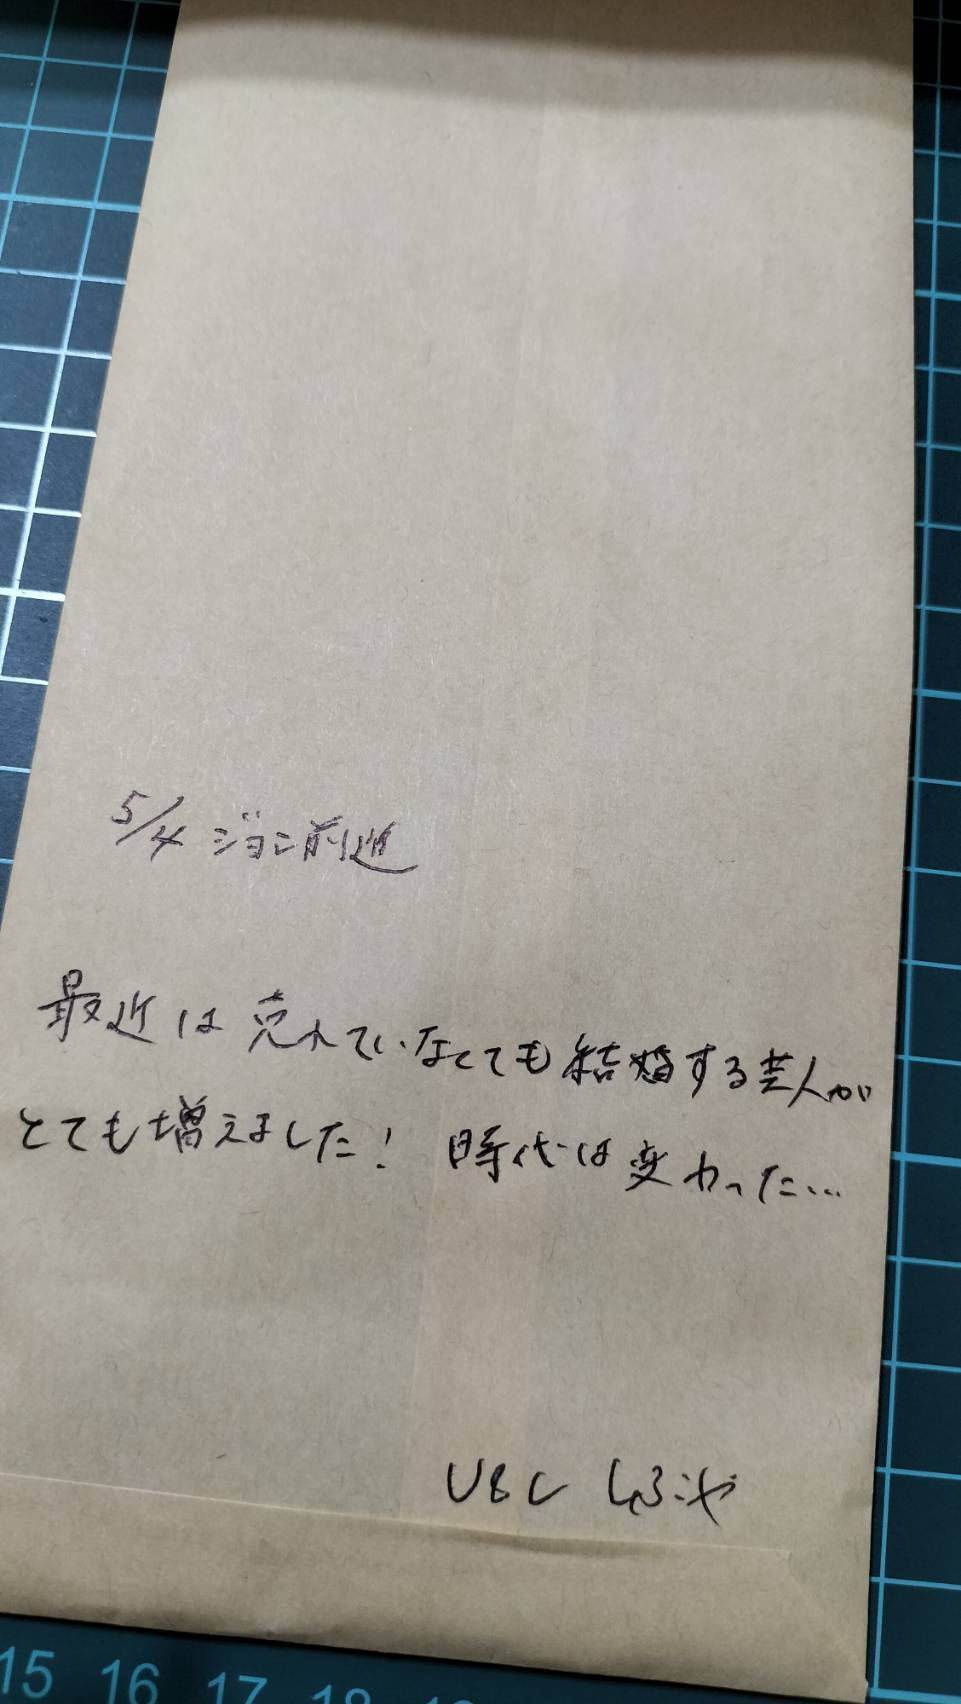 5/4 ジョン前進
最近は売れていなくても結婚する芸人が
とても増えました! 時代は変わった…
15 16 17 18